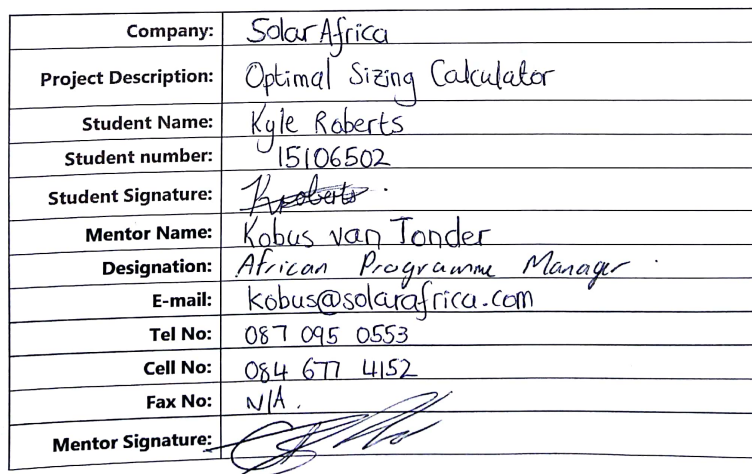 Company: SolarAfrica
Project Description: Optimal Sizing Calculator
Student Name: Kyle Roberts
Student number: 15106502
Student Signature: Kroberts.
Mentor Name: Kobus van Tonder
Designation: African Programme Manager.
E-mail: kobus@solarafrica.com
Tel No: 087 095 0553
Cell No: 084 677 4152
Fax No: N/A.
Mentor Signature: